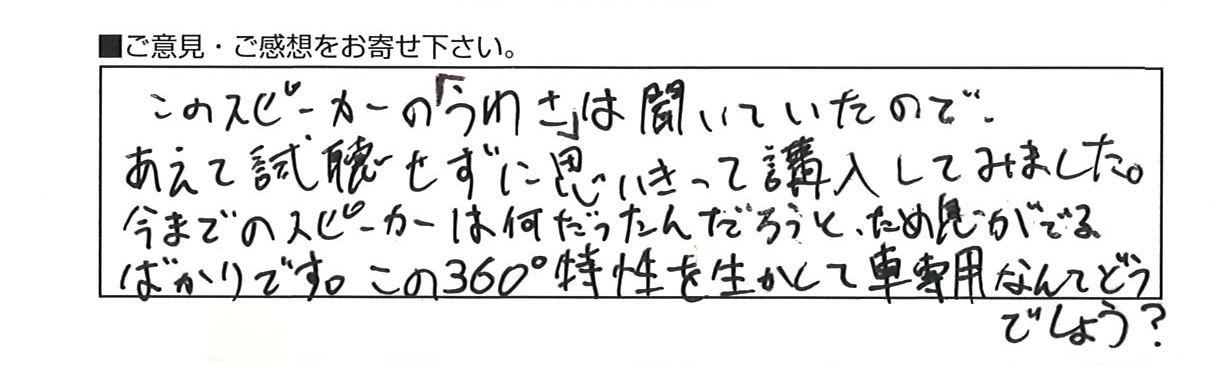 ■ご意見・ご感想をお寄せ下さい。
このスピーカーの「うわさ」は聞いていたので、
あえて試聴せずに思いきって講入してみました。
今までのスピーカーは何だったんだろうと、ため息がでる
ばかりです。この360°特性を生かして車専用なんてどう
でしょう?